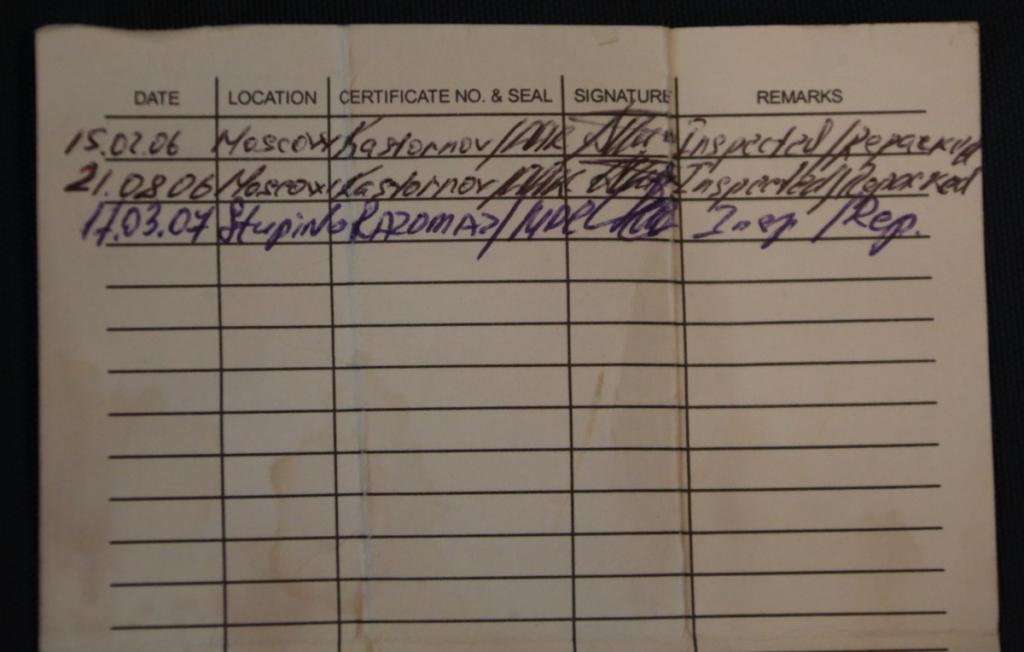 DATE LOCATION CERTIFICATE NO. & SEAL SIGNATURE REMARKS
15.02.06 Moscow Kastornov Inspected/Repacked
21.08.06 Moscow Kastornov Inspected/Repacked
17.03.07 Stupino Insp/Rep.